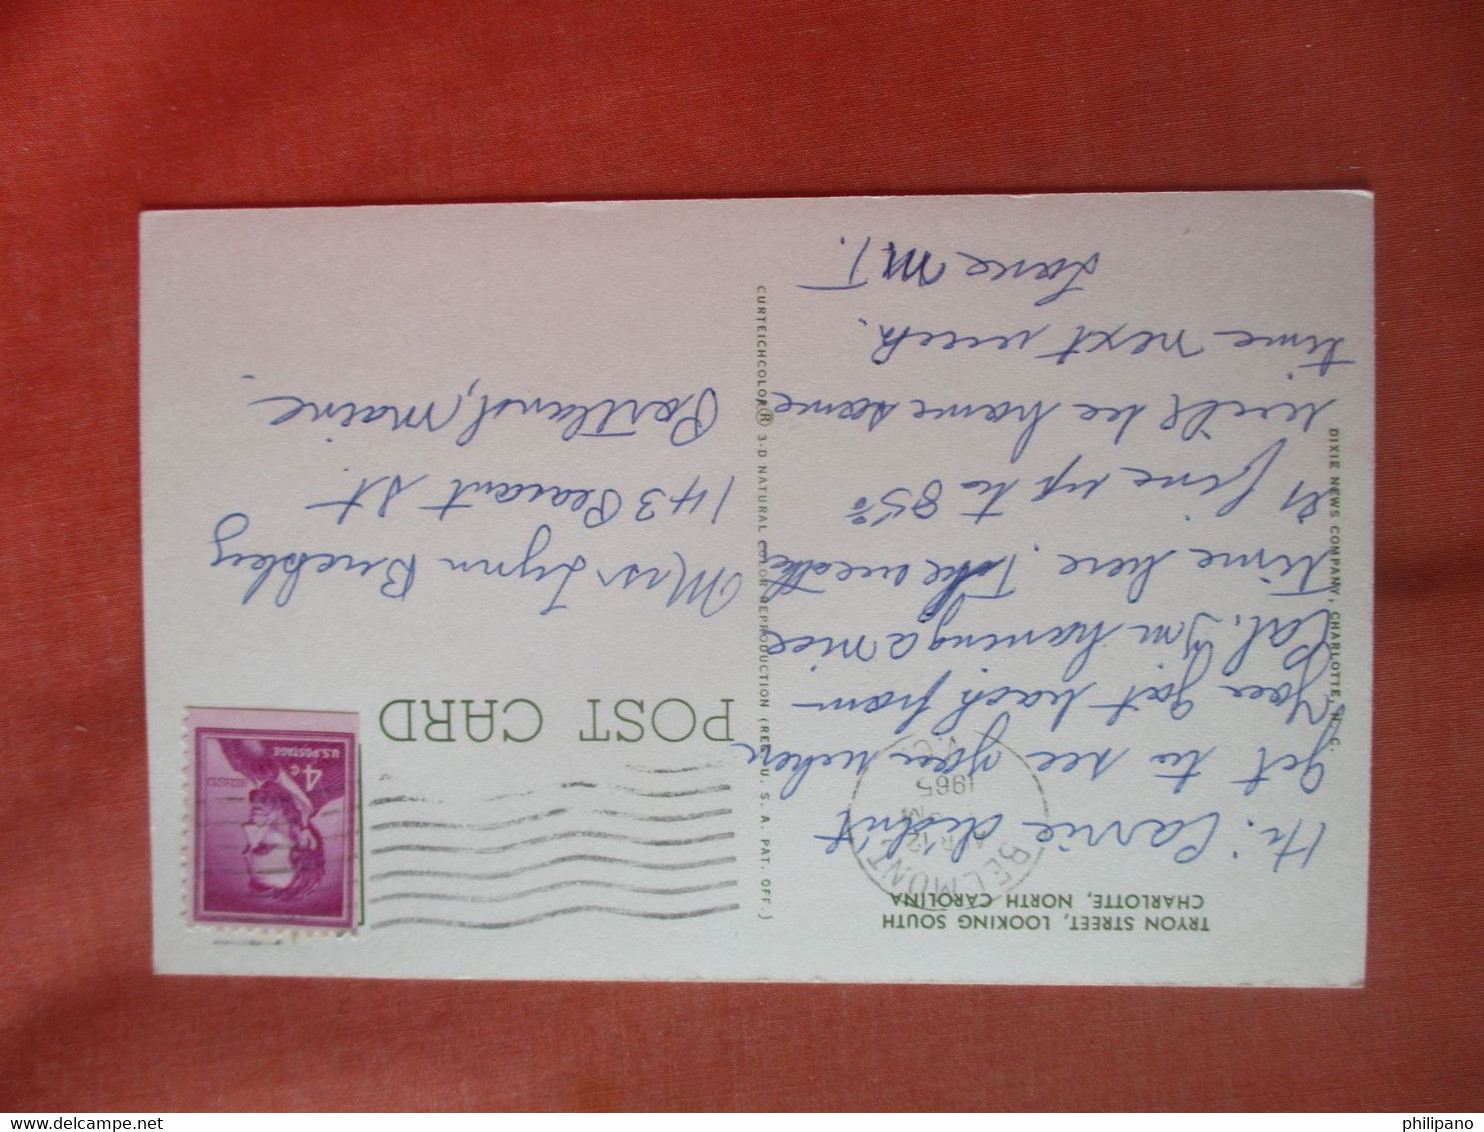 TRYON STREET, LOOKING SOUTH
CHARLOTTE, NORTH CAROLINA
Hi: Carrie didn't
get to see you when
you got back from
Cal. I'm having a nice
time here. The weather
is fine up to 85°
will be home some
time next week.
Love M T.
DIXIE NEWS COMPANY, CHARLOTTE, N. C.
CURTEICHCOLOR® 3-D NATURAL COLOR REPRODUCTION (REG. U. S. A. PAT. OFF.)
BELMONT
APR 12
M
1965
N.C.
POST CARD
U.S. POSTAGE
4¢
Miss Lynn
143 St.
Portland, Maine
philipano